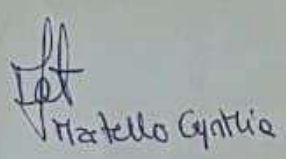 Martello Cynthia